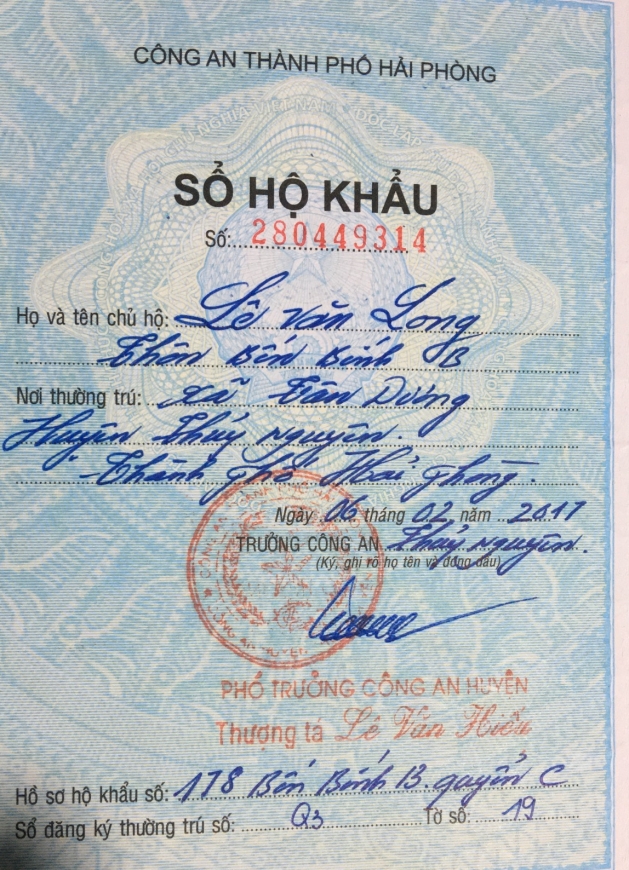 CÔNG AN THÀNH PHỐ HẢI PHÒNG
SỔ HỘ KHẨU
Số: 280449314
Họ và tên chủ hộ: Lê Văn Long
Thôn Bến Bính B
Nơi thường trú: xã Tân Dương
Huyện Thuỷ Nguyên.
Thành phố Hải Phòng.
Ngày 06 tháng 02 năm 2017
TRƯỞNG CÔNG AN Thuỷ Nguyên.
(Ký, ghi rõ họ tên và đóng dấu)
PHÓ TRƯỞNG CÔNG AN HUYỆN
Thượng tá Lê Văn Hiếu
Hồ sơ hộ khẩu số: 178 Bến Bính B. quyển C
Sổ đăng ký thường trú số: Q3 Tờ số: 19